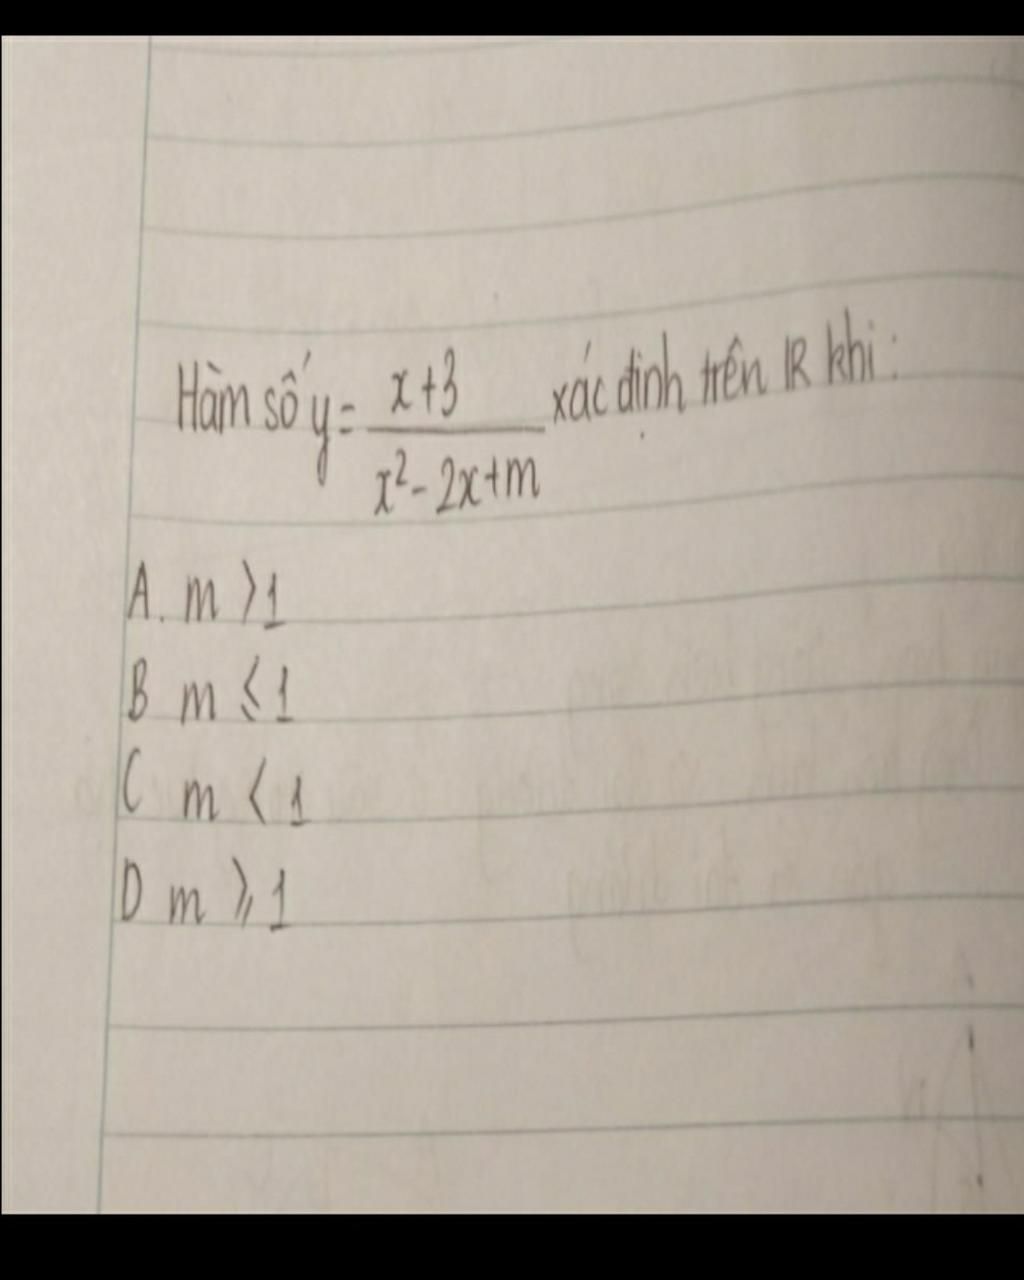 Hàm số y = x+3 / x² - 2x + m xác định trên ℝ khi:
A. m > 1
B m ≤ 1
C m < 1
D m ⩾ 1